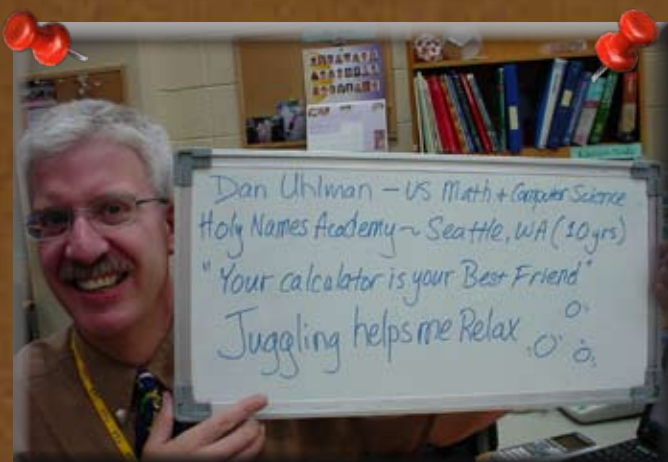 Dan Uhlman - US Math + Computer Science
Holy Names Academy ~ Seattle, WA (10 yrs)
"Your calculator is your Best Friend"
Juggling helps me Relax